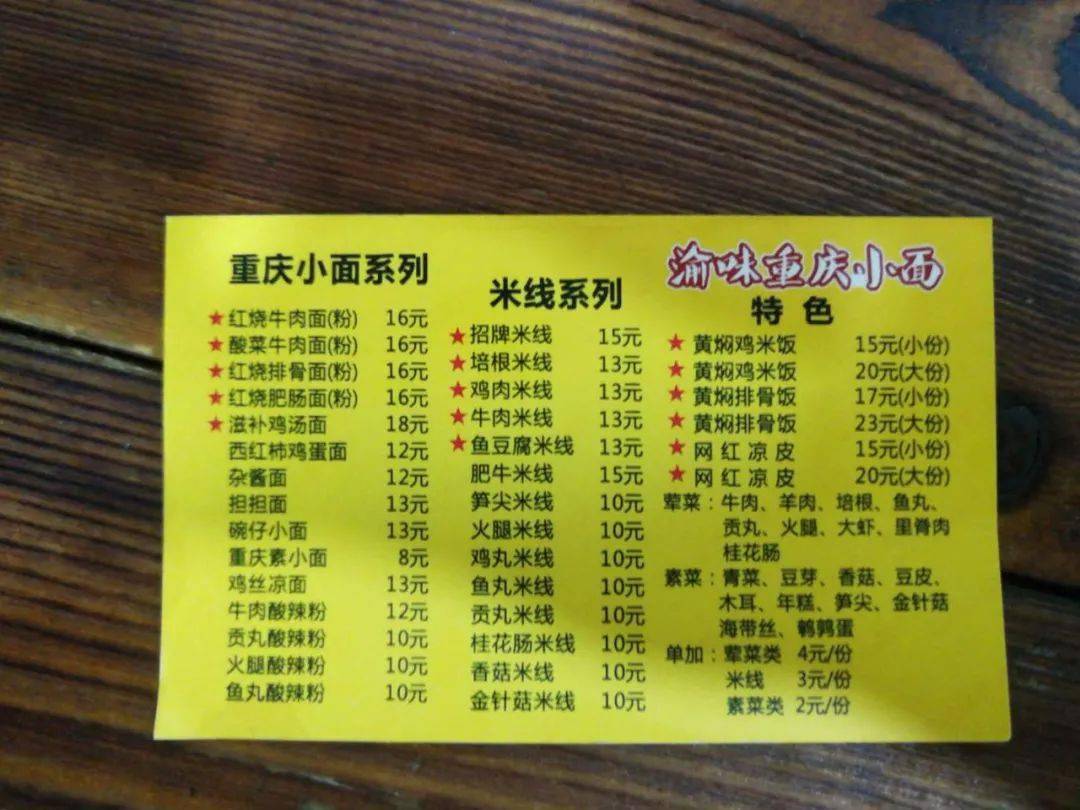 重庆小面系列
★红烧牛肉面(粉) 16元
★酸菜牛肉面(粉) 16元
★红烧排骨面(粉) 16元
★红烧肥肠面(粉) 16元
★滋补鸡汤面 18元
西红柿鸡蛋面 12元
杂酱面 12元
担担面 13元
碗仔小面 13元
重庆素小面 8元
鸡丝凉面 13元
牛肉酸辣粉 12元
贡丸酸辣粉 10元
火腿酸辣粉 10元
鱼丸酸辣粉 10元
米线系列
★招牌米线 15元
★培根米线 13元
★鸡肉米线 13元
★牛肉米线 13元
★鱼豆腐米线 13元
肥牛米线 15元
笋尖米线 10元
火腿米线 10元
鸡丸米线 10元
鱼丸米线 10元
贡丸米线 10元
桂花肠米线 10元
香菇米线 10元
金针菇米线 10元
渝味重庆小面
特色
★黄焖鸡米饭 15元(小份)
★黄焖鸡米饭 20元(大份)
★黄焖排骨饭 17元(小份)
★黄焖排骨饭 23元(大份)
★网红凉皮 15元(小份)
★网红凉皮 20元(大份)
荤菜：牛肉、羊肉、培根、鱼丸、
贡丸、火腿、大虾、里脊肉
桂花肠
素菜：青菜、豆芽、香菇、豆皮、
木耳、年糕、笋尖、金针菇
海带丝、鹌鹑蛋
单加：荤菜类 4元/份
米线 3元/份
素菜类 2元/份